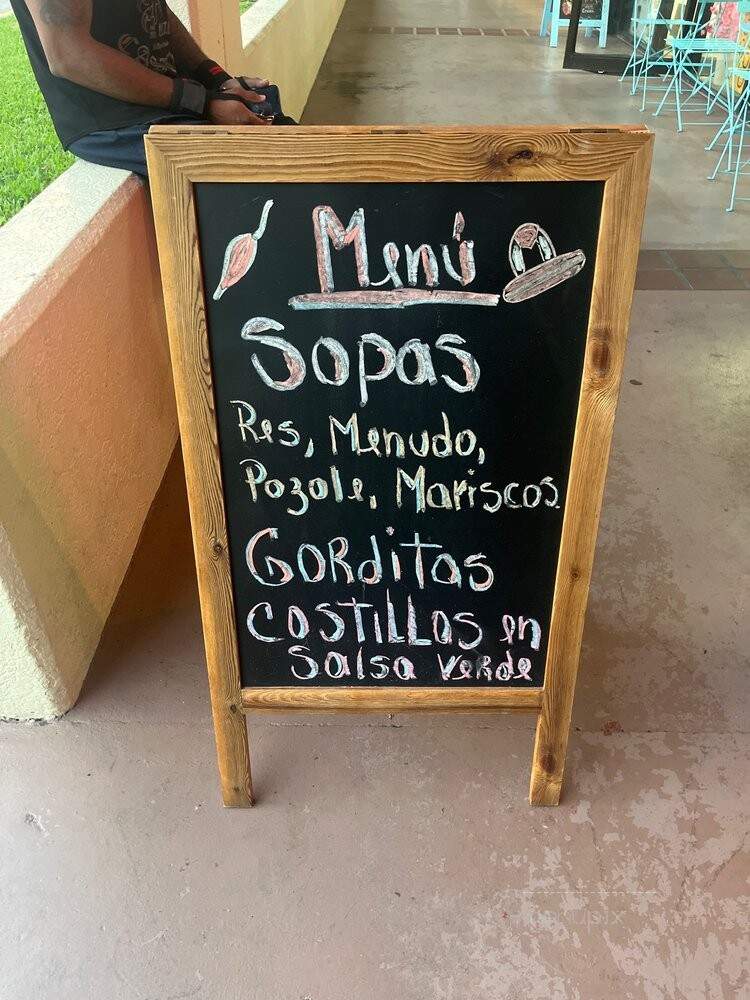 Menú
Sopas
Res, Menudo,
Pozole, Mariscos.
Gorditas
Costillas en
Salsa verde